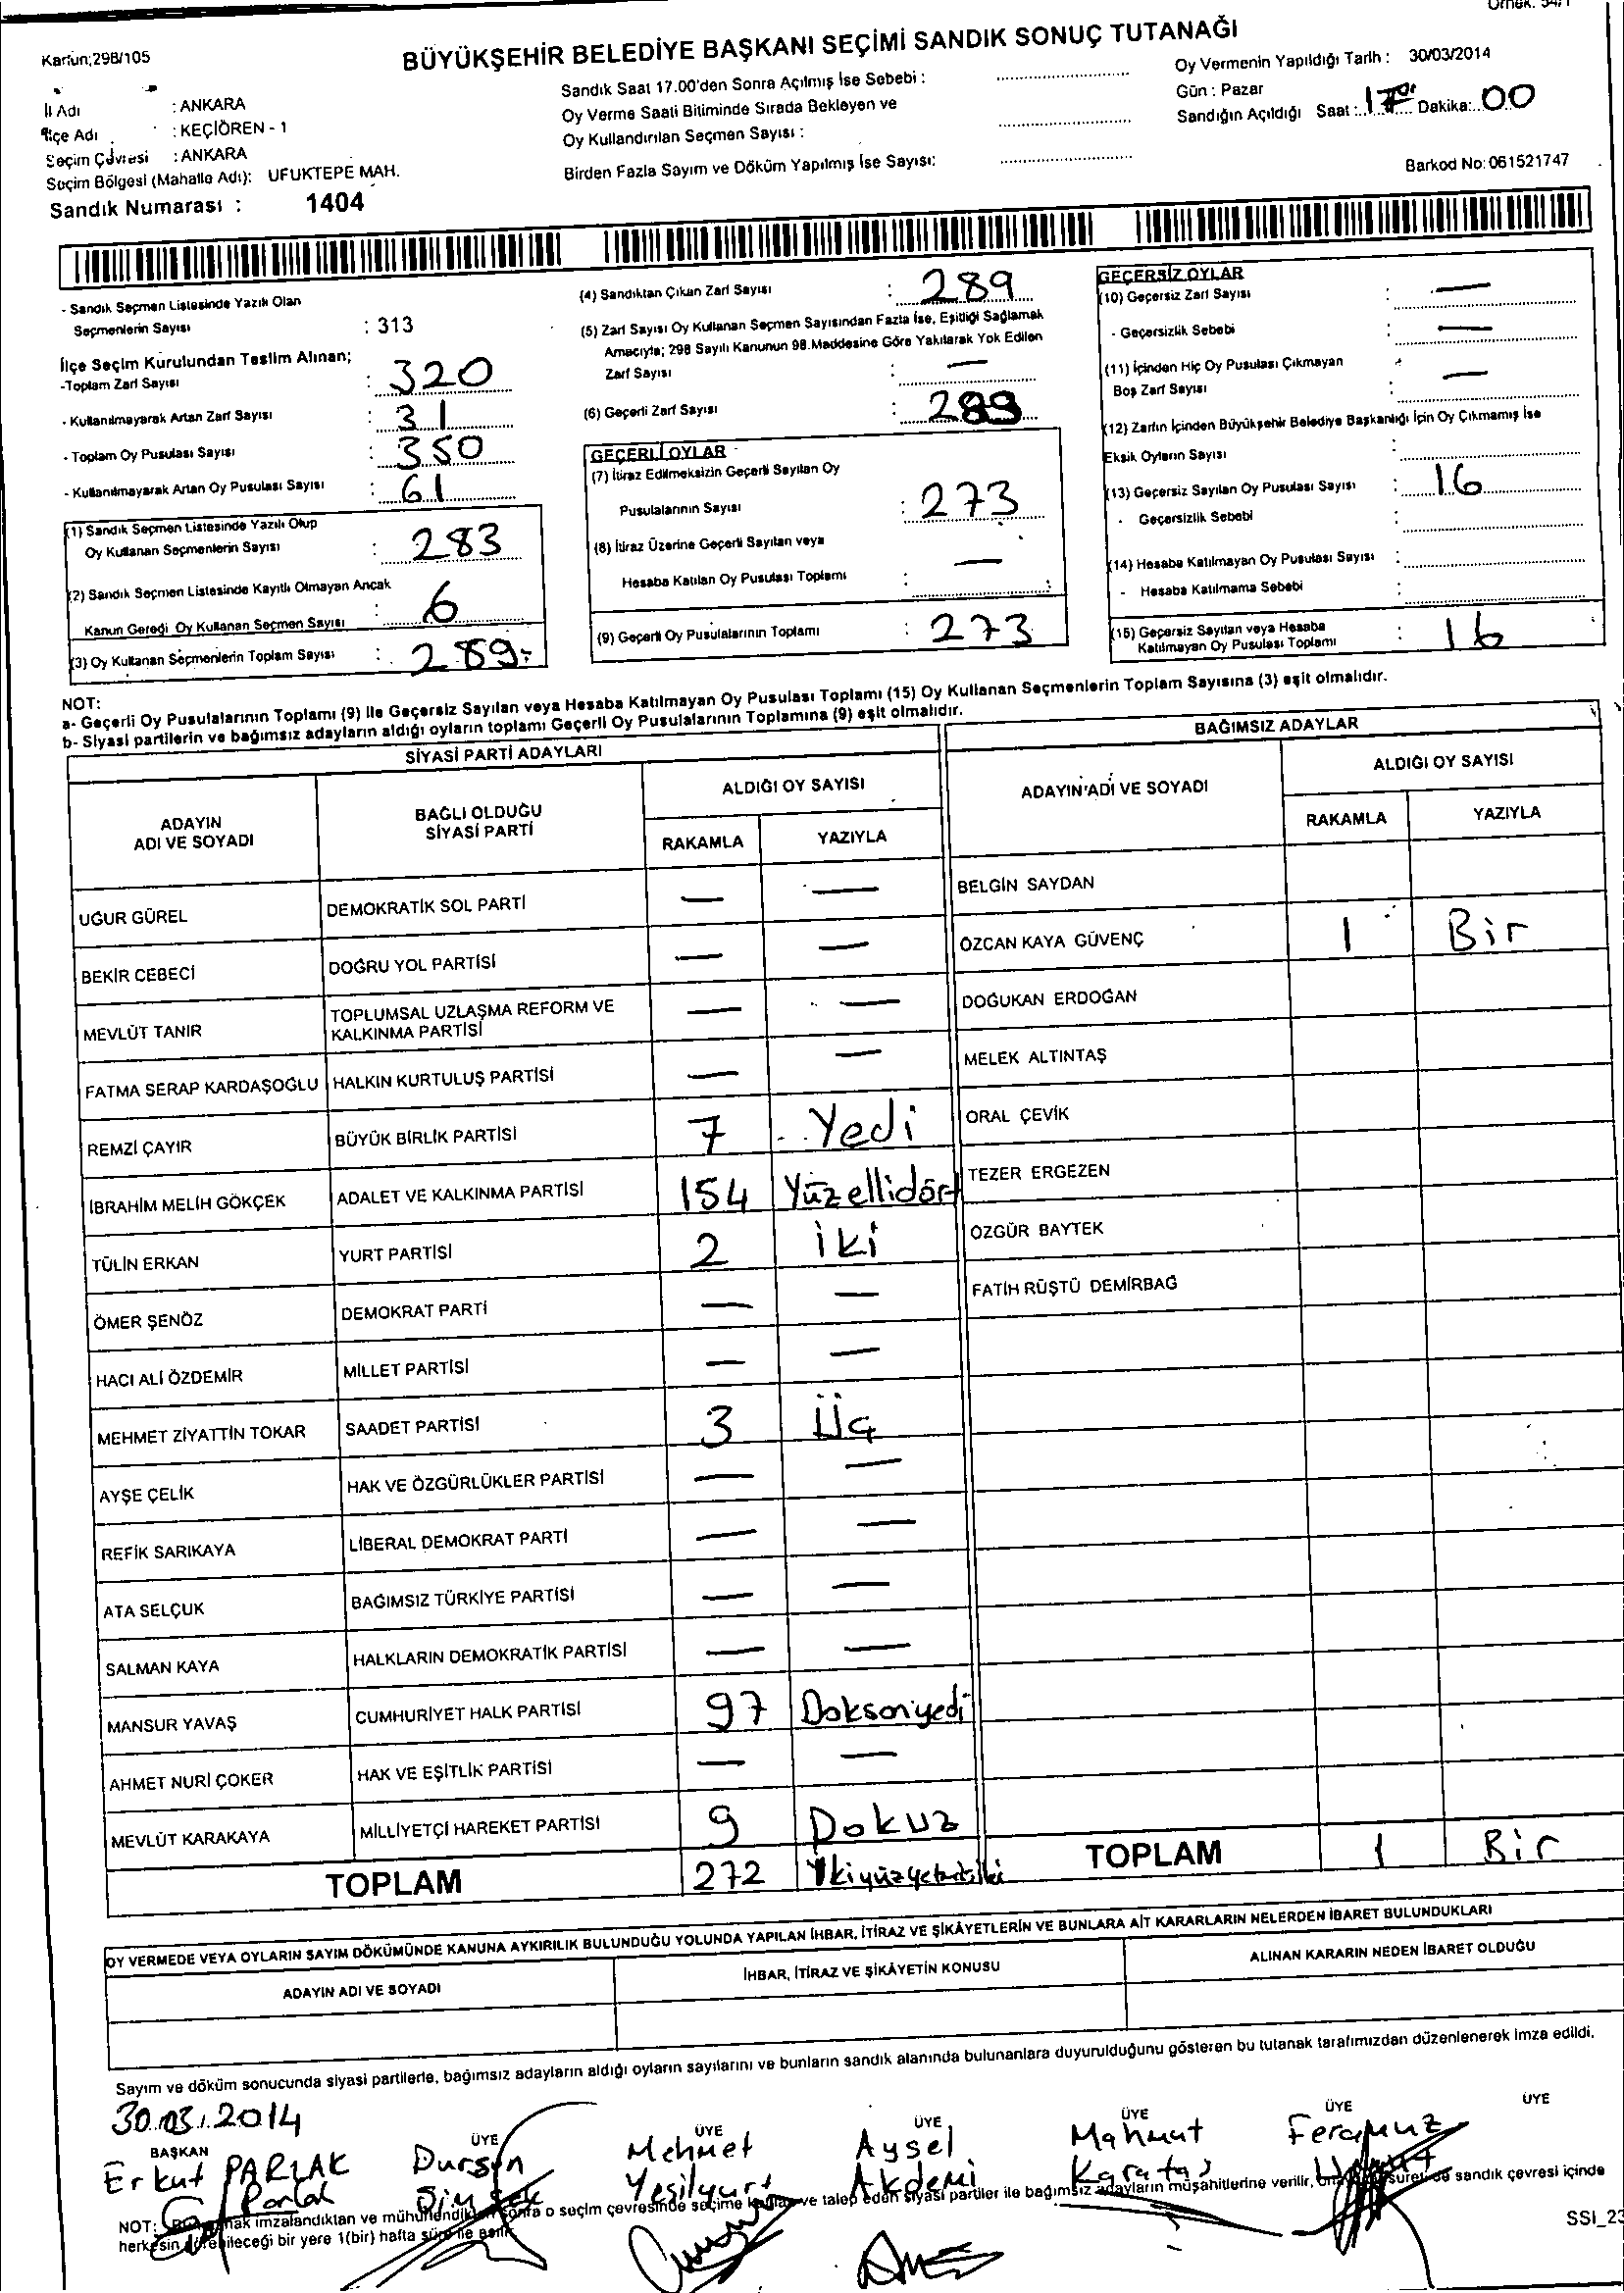 Örnek: 54/1
Kanun;298/105
BÜYÜKŞEHİR BELEDİYE BAŞKANI SEÇİMİ SANDIK SONUÇ TUTANAĞI
İl Adı : ANKARA
İlçe Adı : KEÇİÖREN - 1
Seçim Çevresi : ANKARA
Seçim Bölgesi (Mahalle Adı): UFUKTEPE MAH.
Sandık Numarası : 1404
Sandık Saat 17.00'den Sonra Açılmış İse Sebebi :
Oy Verme Saati Bitiminde Sırada Bekleyen ve
Oy Kullandırılan Seçmen Sayısı :
Birden Fazla Sayım ve Döküm Yapılmış İse Sayısı:
Oy Vermenin Yapıldığı Tarih : 30/03/2014
Gün : Pazar
Sandığın Açıldığı Saat : 17 Dakika: 00
Barkod No: 061521747
- Sandık Seçmen Listesinde Yazılı Olan
Seçmenlerin Sayısı : 313
İlçe Seçim Kurulundan Teslim Alınan;
-Toplam Zarf Sayısı : 320
- Kullanılmayarak Artan Zarf Sayısı : 31
- Toplam Oy Pusulası Sayısı : 350
- Kullanılmayarak Artan Oy Pusulası Sayısı : 61
(1) Sandık Seçmen Listesinde Yazılı Olup
Oy Kullanan Seçmenlerin Sayısı : 283
(2) Sandık Seçmen Listesinde Kayıtlı Olmayan Ancak
Kanun Gereği Oy Kullanan Seçmen Sayısı : 6
(3) Oy Kullanan Seçmenlerin Toplam Sayısı : 289
(4) Sandıktan Çıkan Zarf Sayısı : 289
(5) Zarf Sayısı Oy Kullanan Seçmen Sayısından Fazla İse, Eşitliği Sağlamak
Amacıyla; 298 Sayılı Kanunun 98.Maddesine Göre Yakılarak Yok Edilen
Zarf Sayısı : —
(6) Geçerli Zarf Sayısı : 289
GEÇERLİ OYLAR
(7) İtiraz Edilmeksizin Geçerli Sayılan Oy
Pusulalarının Sayısı : 273
(8) İtiraz Üzerine Geçerli Sayılan veya
Hesaba Katılan Oy Pusulası Toplamı : —
(9) Geçerli Oy Pusulalarının Toplamı : 273
GEÇERSİZ OYLAR
(10) Geçersiz Zarf Sayısı : —
- Geçersizlik Sebebi : —
(11) İçinden Hiç Oy Pusulası Çıkmayan
Boş Zarf Sayısı : —
(12) Zarfın İçinden Büyükşehir Belediye Başkanlığı İçin Oy Çıkmamış İse
Eksik Oyların Sayısı :
(13) Geçersiz Sayılan Oy Pusulası Sayısı : 16
- Geçersizlik Sebebi :
(14) Hesaba Katılmayan Oy Pusulası Sayısı :
- Hesaba Katılmama Sebebi :
(15) Geçersiz Sayılan veya Hesaba
Katılmayan Oy Pusulası Toplamı : 16
NOT:
a- Geçerli Oy Pusulalarının Toplamı (9) ile Geçersiz Sayılan veya Hesaba Katılmayan Oy Pusulası Toplamı (15) Oy Kullanan Seçmenlerin Toplam Sayısına (3) eşit olmalıdır.
b- Siyasi partilerin ve bağımsız adayların aldığı oyların toplamı Geçerli Oy Pusulalarının Toplamına (9) eşit olmalıdır.
SİYASİ PARTİ ADAYLARI
ADAYIN ADI VE SOYADI BAĞLI OLDUĞU SİYASİ PARTİ ALDIĞI OY SAYISI
RAKAMLA YAZIYLA
UĞUR GÜREL DEMOKRATİK SOL PARTİ — —
BEKİR CEBECİ DOĞRU YOL PARTİSİ — —
MEVLÜT TANIR TOPLUMSAL UZLAŞMA REFORM VE KALKINMA PARTİSİ — —
FATMA SERAP KARDAŞOĞLU HALKIN KURTULUŞ PARTİSİ — —
REMZİ ÇAYIR BÜYÜK BİRLİK PARTİSİ 7 Yedi
İBRAHİM MELİH GÖKÇEK ADALET VE KALKINMA PARTİSİ 154 Yüzellidört
TÜLİN ERKAN YURT PARTİSİ 2 İki
ÖMER ŞENÖZ DEMOKRAT PARTİ — —
HACI ALİ ÖZDEMİR MİLLET PARTİSİ — —
MEHMET ZİYATTİN TOKAR SAADET PARTİSİ 3 Üç
AYŞE ÇELİK HAK VE ÖZGÜRLÜKLER PARTİSİ — —
REFİK SARIKAYA LİBERAL DEMOKRAT PARTİ — —
ATA SELÇUK BAĞIMSIZ TÜRKİYE PARTİSİ — —
SALMAN KAYA HALKLARIN DEMOKRATİK PARTİSİ — —
MANSUR YAVAŞ CUMHURİYET HALK PARTİSİ 97 Doksanyedi
AHMET NURİ ÇOKER HAK VE EŞİTLİK PARTİSİ — —
MEVLÜT KARAKAYA MİLLİYETÇİ HAREKET PARTİSİ 9 Dokuz
TOPLAM 272 İkiyüzyetmişiki
BAĞIMSIZ ADAYLAR
ADAYIN ADI VE SOYADI ALDIĞI OY SAYISI
RAKAMLA YAZIYLA
BELGİN SAYDAN
ÖZCAN KAYA GÜVENÇ 1 Bir
DOĞUKAN ERDOĞAN
MELEK ALTINTAŞ
ORAL ÇEVİK
TEZER ERGEZEN
ÖZGÜR BAYTEK
FATİH RÜŞTÜ DEMİRBAĞ
TOPLAM 1 Bir
OY VERMEDE VEYA OYLARIN SAYIM DÖKÜMÜNDE KANUNA AYKIRILIK BULUNDUĞU YOLUNDA YAPILAN İHBAR, İTİRAZ VE ŞİKÂYETLERİN VE BUNLARA AİT KARARLARIN NELERDEN İBARET BULUNDUKLARI
ADAYIN ADI VE SOYADI İHBAR, İTİRAZ VE ŞİKÂYETİN KONUSU ALINAN KARARIN NEDEN İBARET OLDUĞU
Sayım ve döküm sonucunda siyasi partilerle, bağımsız adayların aldığı oyların sayılarını ve bunların sandık alanında bulunanlara duyurulduğunu gösteren bu tutanak tarafımızdan düzenlenerek imza edildi.
30.03.2014
BAŞKAN ÜYE ÜYE ÜYE ÜYE ÜYE ÜYE
Erkut PARLAK Dursun Mehmet Aysel Mahmut Feramuz
Parlak Yeşilyurt Akdemi Karataş
NOT: imzalandıktan ve mühürlendikten sonra o seçim çevresinde seçime katılan ve talep eden siyasi partiler ile bağımsız adayların müşahitlerine verilir, sureti de sandık çevresi içinde
herkesin görebileceği bir yere 1(bir) hafta süre ile asılır.
SSI_23